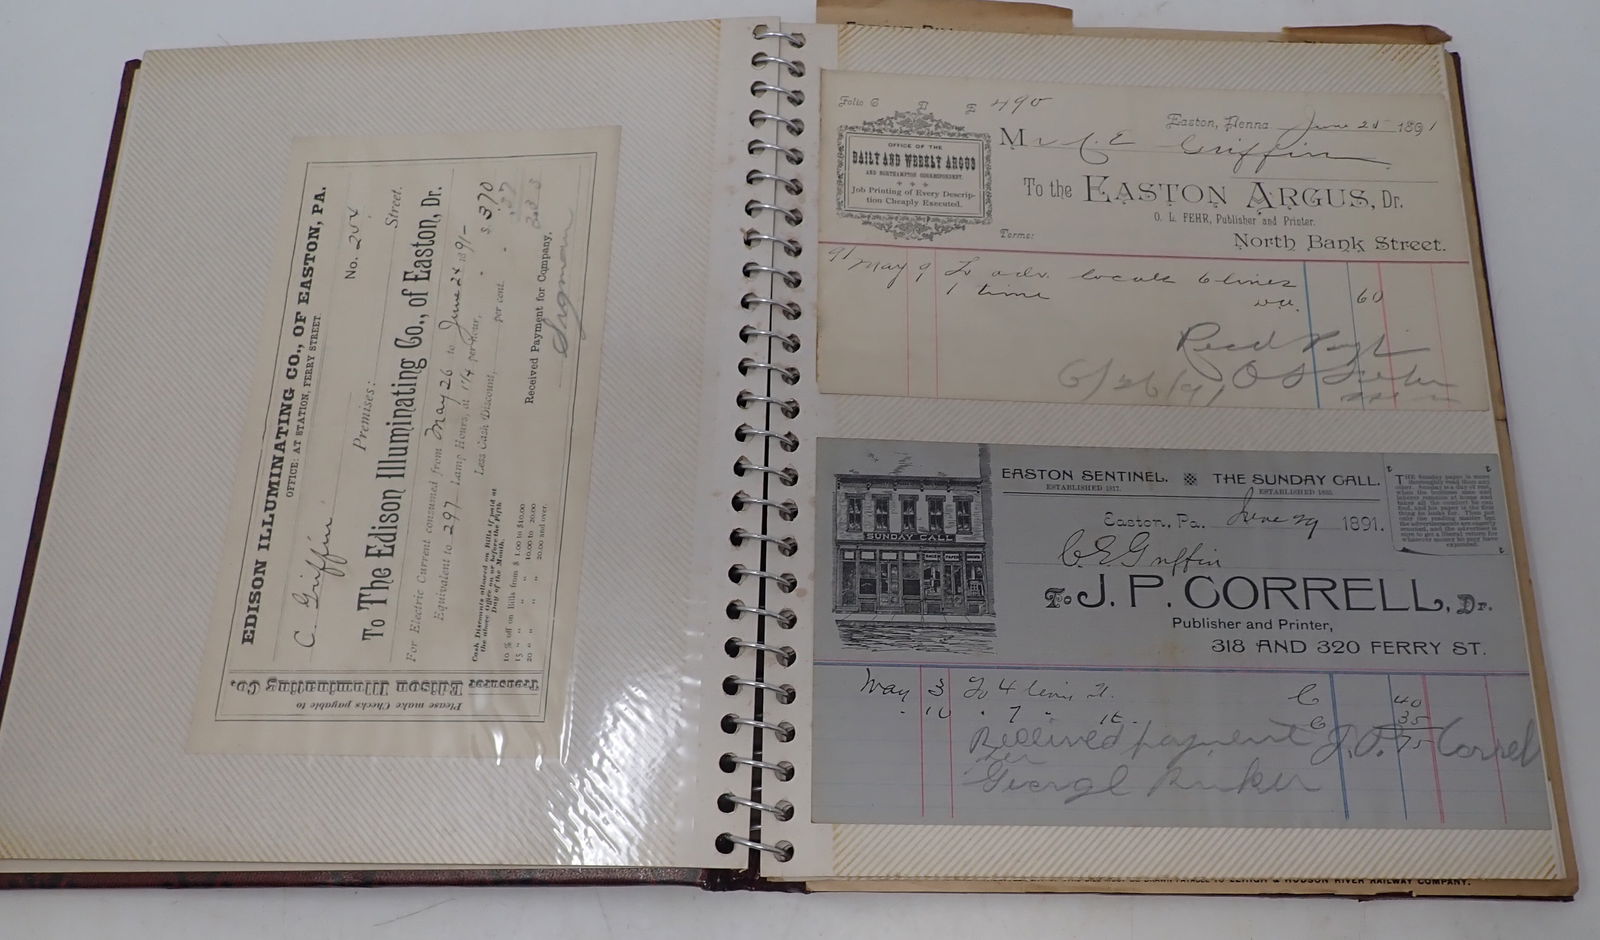 EDISON ILLUMINATING CO., OF EASTON, PA.
OFFICE: AT STATION, FERRY STREET.
C. Griffin
No. 254
Premises: Street.
To The Edison Illuminating Co., of Easton, Dr.
For Electric Current consumed from May 26 to June 24 1891
Equivalent to 297 Lamp Hours, at 1 1/4 per hour, $ 3.70
Less Cash Discount, per cent. .37
3.33
Received Payment for Company.
Cash Discounts allowed on Bills if paid at
the above Office on or before the Fifth
Day of the Month.
10 % off on Bills from $ 1.00 to $10.00
15 " " " " 10.00 to 20.00
20 " " " " 20.00 and over.
Please make Checks payable to
Treasurer Edison Illuminating Co.
Folio C D E 490
Easton, Penna June 25 1891
OFFICE OF THE
DAILY AND WEEKLY ARGUS
AND NORTHAMPTON CORRESPONDENT.
Job Printing of Every Descrip-
tion Cheaply Executed.
Mr C. E Griffin
To the EASTON ARGUS, Dr.
O. L. FEHR, Publisher and Printer.
Terms: North Bank Street.
91 May 9 To adv. locals 6 lines
1 time 60
Recd Payt
6/26/91 O L Fehr
EASTON SENTINEL. THE SUNDAY CALL.
ESTABLISHED 1817. ESTABLISHED 1883.
THE Sunday paper is more
thoroughly read than any
other. Sunday is a day of rest,
when the
Easton, Pa. June 29 1891.
C. E Griffin
SUNDAY CALL
To J. P. CORRELL, Dr.
Publisher and Printer,
318 AND 320 FERRY ST.
May 3 To 4 lines 1t. C 40
" 10 " 7 " 1t. C 35
75
Received payment J. P. Correll
per
George
LEHIGH & HUDSON RIVER RAILWAY COMPANY.